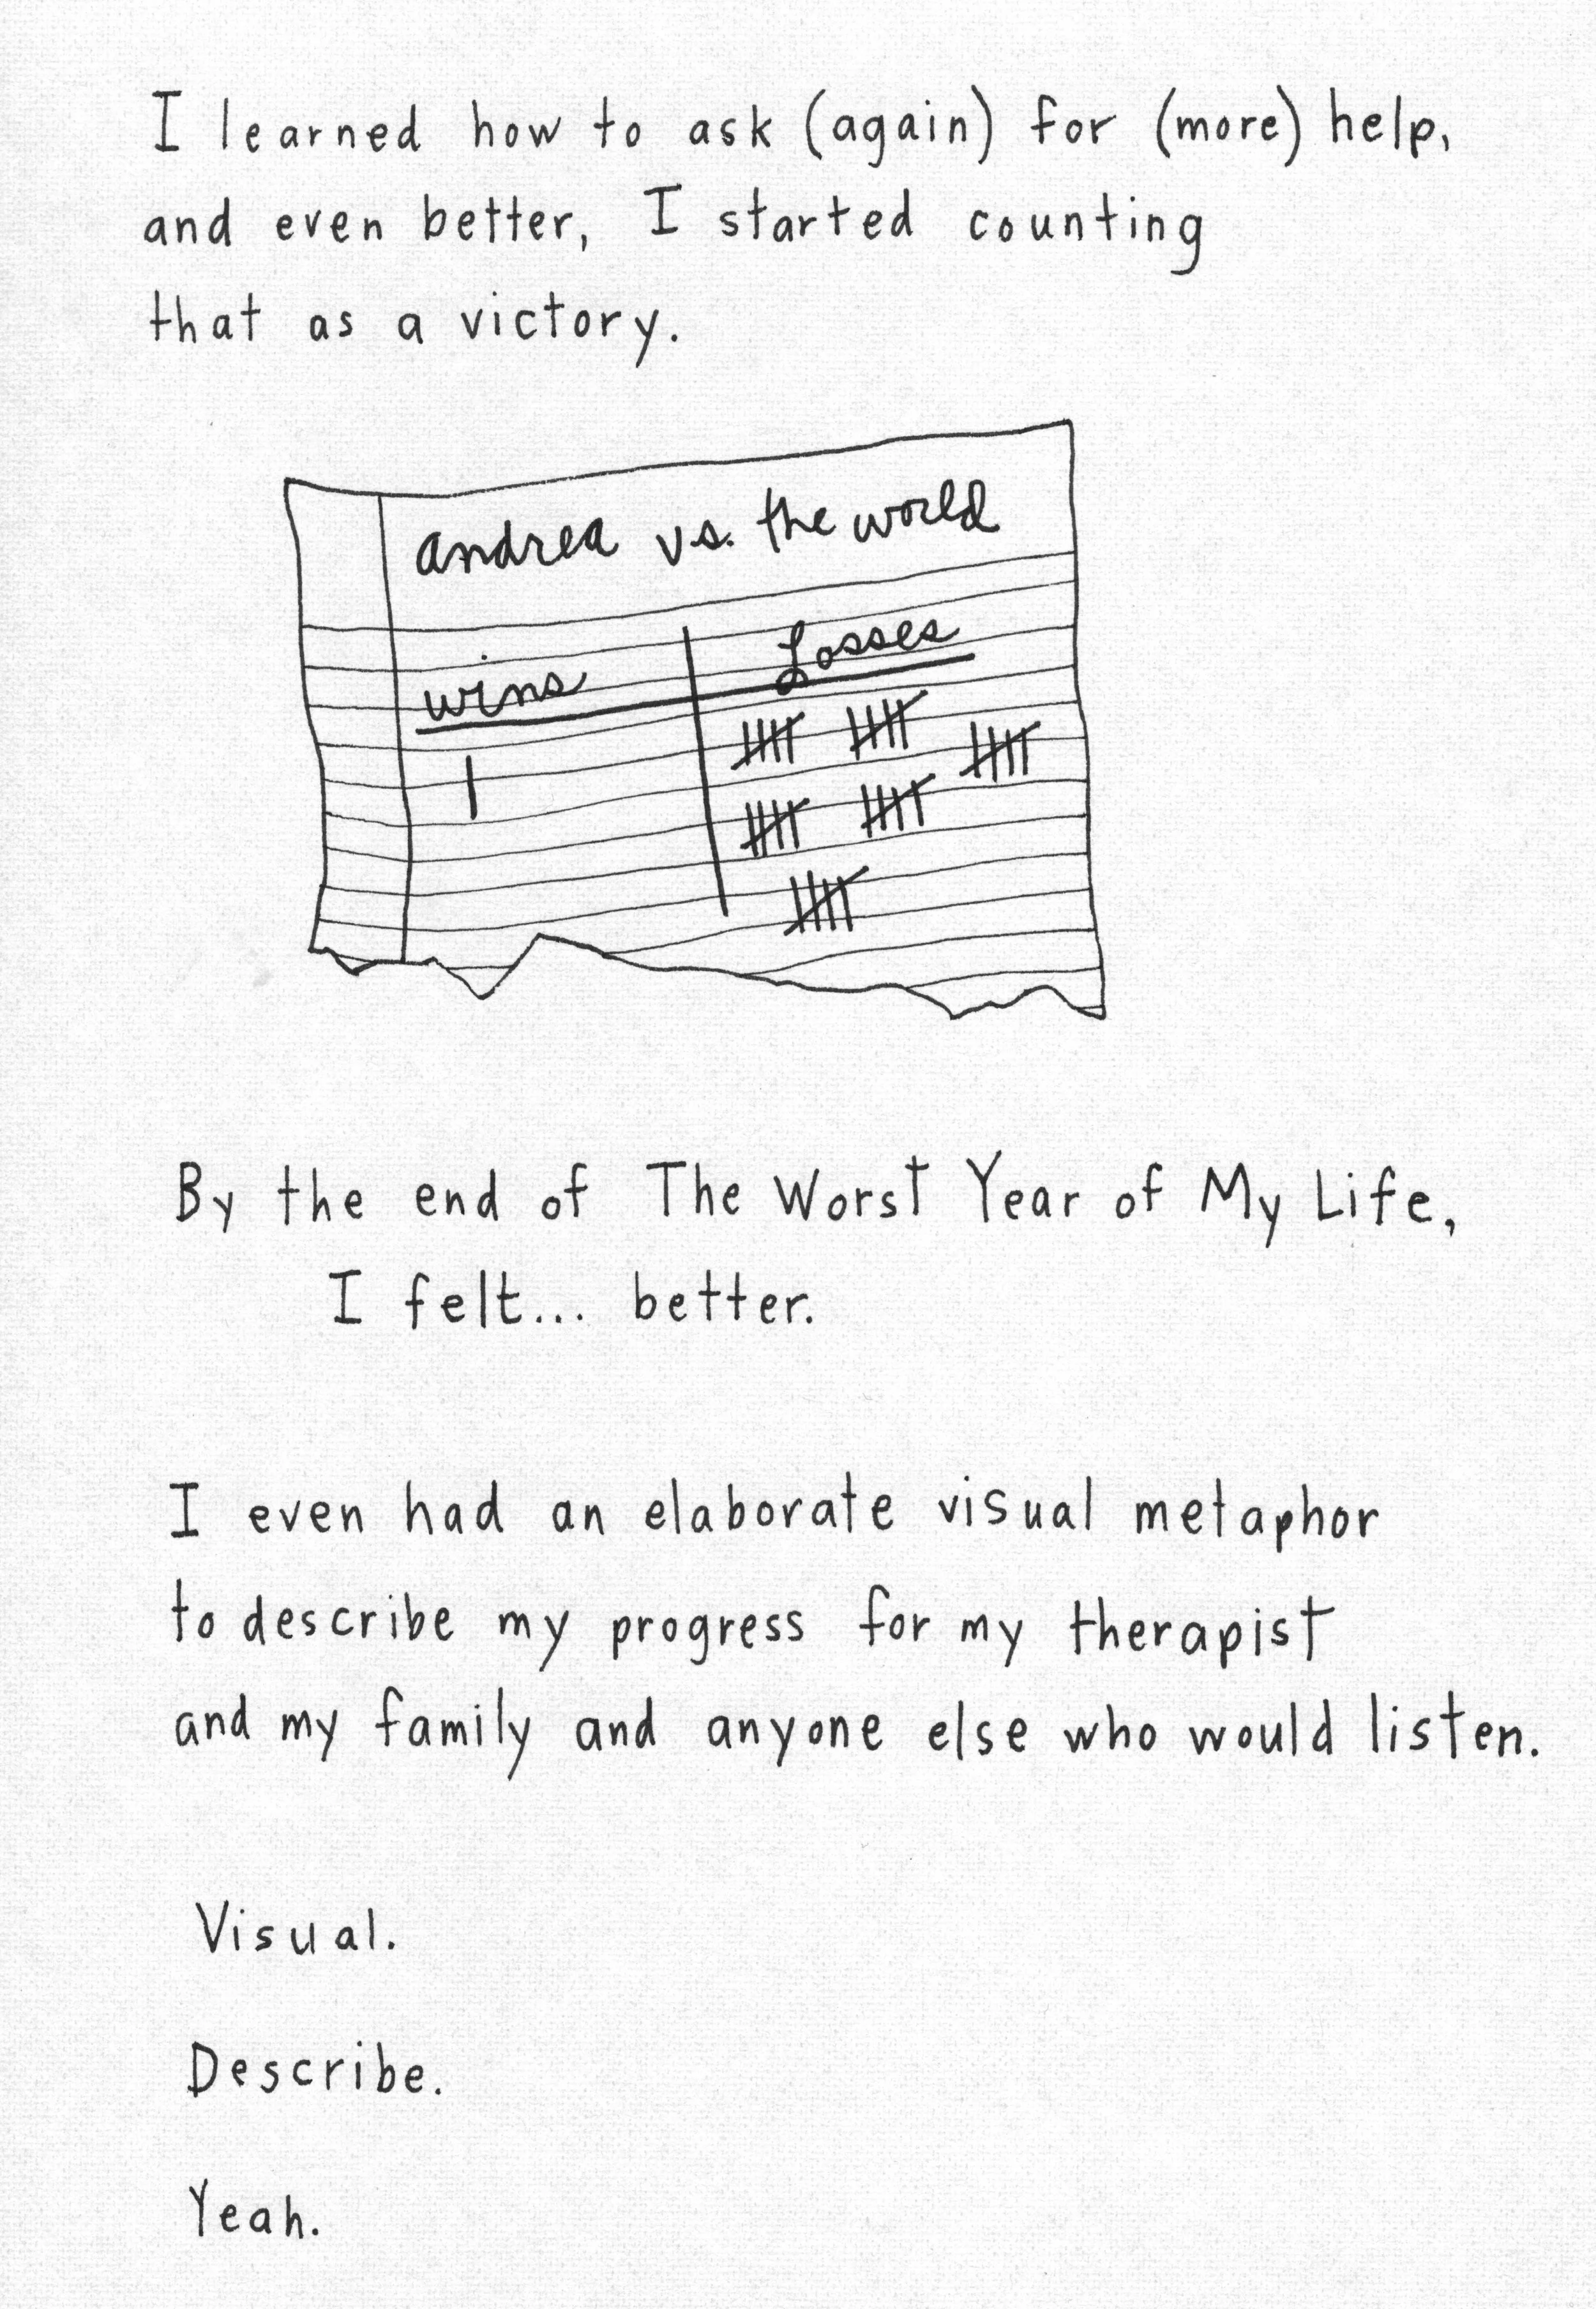 I learned how to ask (again) for (more) help,
and even better, I started counting
that as a victory.
andrea vs. the world
wins Losses
By the end of The Worst Year of My Life,
I felt... better.
I even had an elaborate visual metaphor
to describe my progress for my therapist
and my family and anyone else who would listen.
Visual.
Describe.
Yeah.